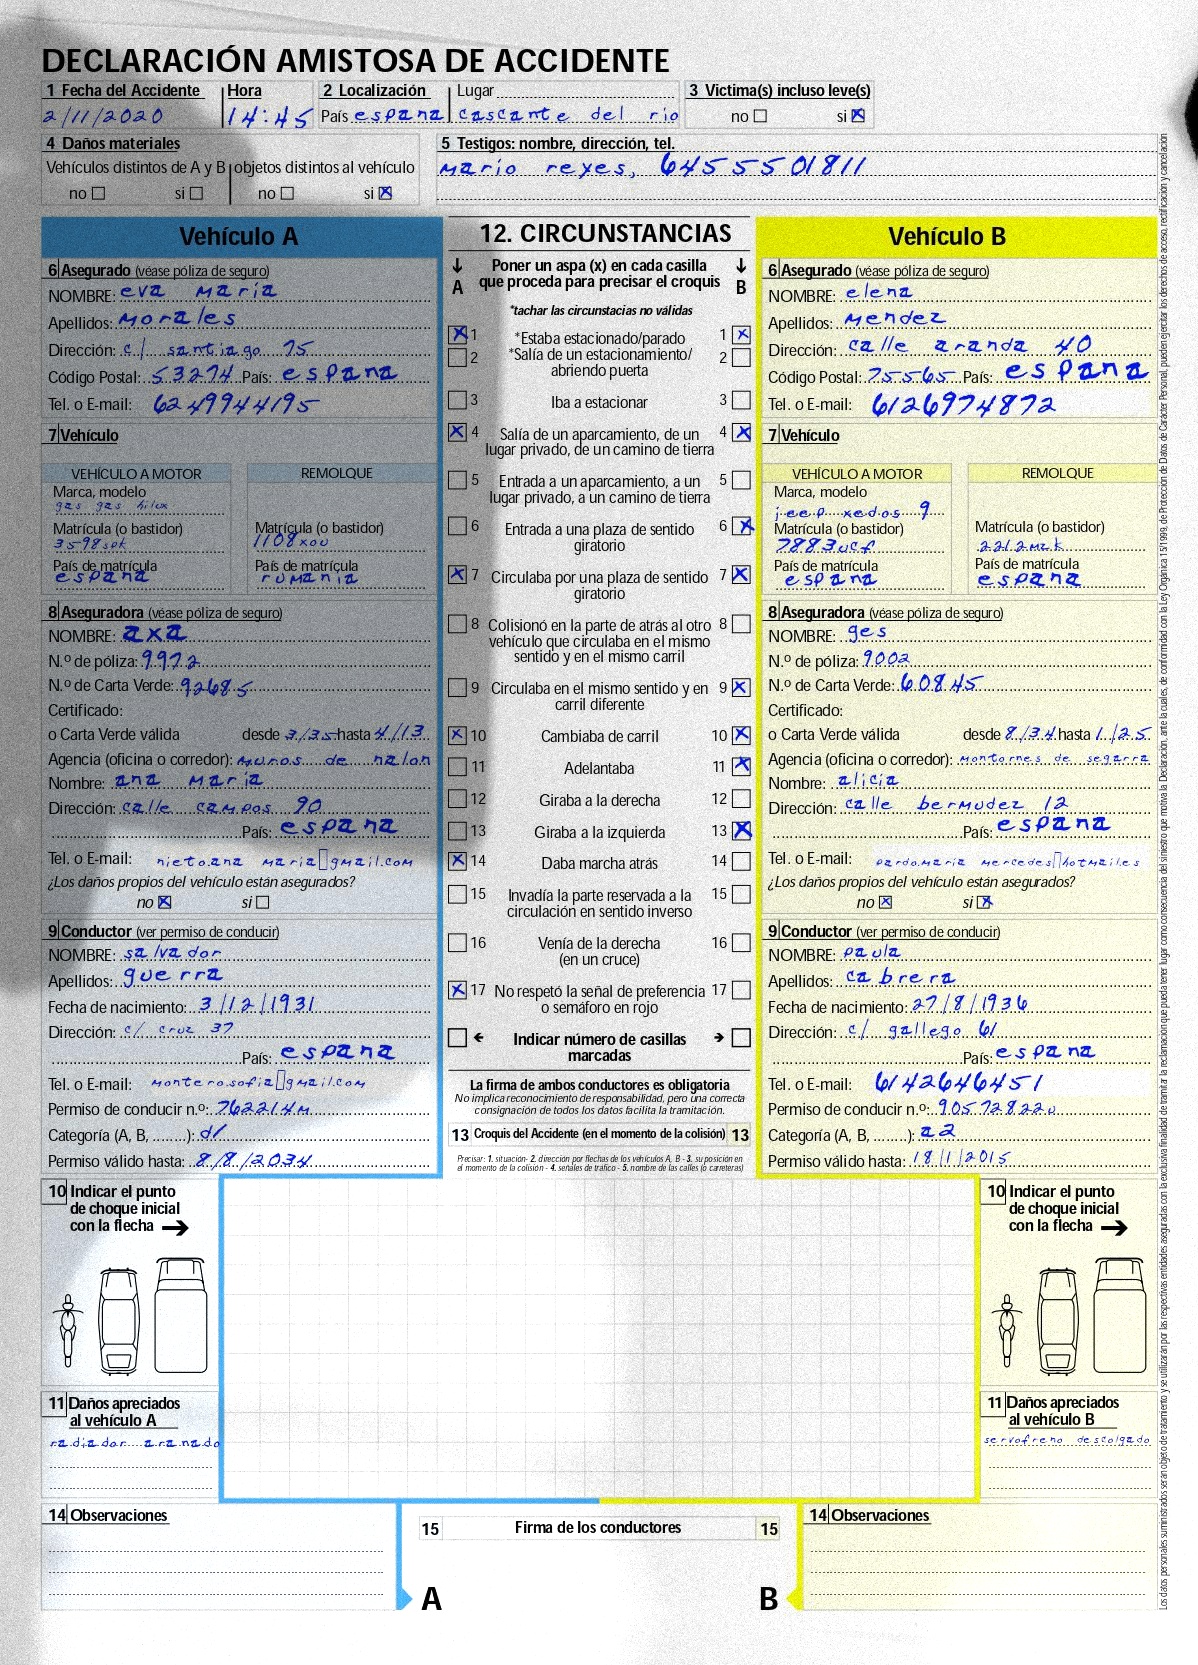 DECLARACIÓN AMISTOSA DE ACCIDENTE
1 Fecha del Accidente Hora 2 Localización Lugar 3 Victima(s) incluso leve(s)
2/11/2020 14:45 País espana cascante del rio no si
4 Daños materiales
Vehículos distintos de A y B objetos distintos al vehículo
no si no si
5 Testigos: nombre, dirección, tel.
mario reyes, 6455501811
Vehículo A
6 Asegurado (véase póliza de seguro)
NOMBRE: eva maria
Apellidos: morales
Dirección: c/ santiago 75
Código Postal: 53274 País: espana
Tel. o E-mail: 6249944195
7 Vehículo
VEHÍCULO A MOTOR REMOLQUE
Marca, modelo
gas gas hilux
Matrícula (o bastidor) Matrícula (o bastidor)
3598spk 1108xou
País de matrícula País de matrícula
espana rumania
8 Aseguradora (véase póliza de seguro)
NOMBRE: axa
N.º de póliza: 9972
N.º de Carta Verde: 92685
Certificado:
o Carta Verde válida desde 3/35 hasta 4/13
Agencia (oficina o corredor): muros de nalon
Nombre: ana maria
Dirección: calle campos 90
País: espana
Tel. o E-mail: nieto.ana maria▯gmail.com
¿Los daños propios del vehículo están asegurados?
no si
9 Conductor (ver permiso de conducir)
NOMBRE: salvador
Apellidos: guerra
Fecha de nacimiento: 3/12/1931
Dirección: c/ cruz 37
País: espana
Tel. o E-mail: montero.sofia▯gmail.com
Permiso de conducir n.º: 762214m
Categoría (A, B, ........): d1
Permiso válido hasta: 8/8/2034
12. CIRCUNSTANCIAS
A Poner un aspa (x) en cada casilla que proceda para precisar el croquis B
*tachar las circunstacias no válidas
1 *Estaba estacionado/parado 1
2 *Salía de un estacionamiento/ 2
abriendo puerta
3 Iba a estacionar 3
4 Salía de un aparcamiento, de un 4
lugar privado, de un camino de tierra
5 Entrada a un aparcamiento, a un 5
lugar privado, a un camino de tierra
6 Entrada a una plaza de sentido 6
giratorio
7 Circulaba por una plaza de sentido 7
giratorio
8 Colisionó en la parte de atrás al otro 8
vehículo que circulaba en el mismo
sentido y en el mismo carril
9 Circulaba en el mismo sentido y en 9
carril diferente
10 Cambiaba de carril 10
11 Adelantaba 11
12 Giraba a la derecha 12
13 Giraba a la izquierda 13
14 Daba marcha atrás 14
15 Invadía la parte reservada a la 15
circulación en sentido inverso
16 Venía de la derecha 16
(en un cruce)
17 No respetó la señal de preferencia 17
o semáforo en rojo
Indicar número de casillas
marcadas
La firma de ambos conductores es obligatoria
No implica reconocimiento de responsabilidad, pero una correcta
consignación de todos los datos facilita la tramitación.
13 Croquis del Accidente (en el momento de la colisión) 13
Precisar: 1. situación- 2. dirección por flechas de los vehículos A, B - 3. su posición en
el momento de la colisión - 4. señales de tráfico - 5. nombre de las calles (o carreteras)
Vehículo B
6 Asegurado (véase póliza de seguro)
NOMBRE: elena
Apellidos: mendez
Dirección: calle aranda 40
Código Postal: 75565 País: espana
Tel. o E-mail: 6126974872
7 Vehículo
VEHÍCULO A MOTOR REMOLQUE
Marca, modelo
jeep xedos 9
Matrícula (o bastidor) Matrícula (o bastidor)
7883ucf 2212mzk
País de matrícula País de matrícula
espana espana
8 Aseguradora (véase póliza de seguro)
NOMBRE: ges
N.º de póliza: 9002
N.º de Carta Verde: 60845
Certificado:
o Carta Verde válida desde 8/34 hasta 1/25
Agencia (oficina o corredor): montornes de segarra
Nombre: alicia
Dirección: calle bermudez 12
País: espana
Tel. o E-mail: pardo.maria mercedes▯hotmail.es
¿Los daños propios del vehículo están asegurados?
no si
9 Conductor (ver permiso de conducir)
NOMBRE: paula
Apellidos: cabrera
Fecha de nacimiento: 27/8/1936
Dirección: c/ gallego 61
País: espana
Tel. o E-mail: 6142646451
Permiso de conducir n.º: 90572822u
Categoría (A, B, ........): a2
Permiso válido hasta: 18/1/2015
10 Indicar el punto
de choque inicial
con la flecha
11 Daños apreciados
al vehículo A
radiador aranado
10 Indicar el punto
de choque inicial
con la flecha
11 Daños apreciados
al vehículo B
servofreno descolgado
14 Observaciones
15 Firma de los conductores 15
A B
14 Observaciones
Los datos personales suministrados seran objeto de tratamiento y se utilizaran por las respectivas entidades aseguradas con la exclusiva finalidad de tramitar la reclamación que pueda tener lugar como consecuencia del siniestro que motiva la Declaración, ante la cuales, de conformidad con la Ley Organica 15/1999, de Protección de Datos de Carácter Personal, pueden ejercitar los derechos de acceso, rectificación y cancelación